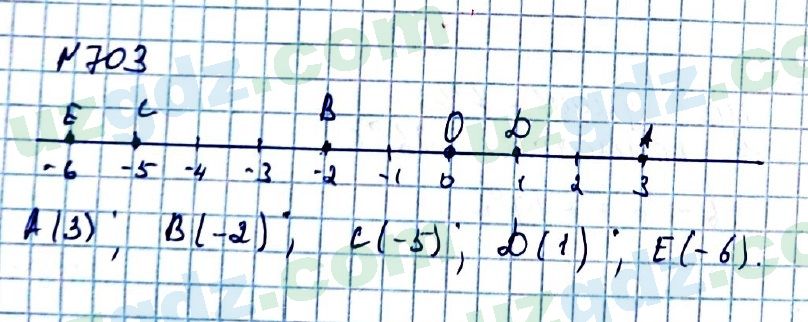 N703
E C B O D A
-6 -5 -4 -3 -2 -1 0 1 2 3
A(3); B(-2); C(-5); D(1); E(-6).
uzgdz.com